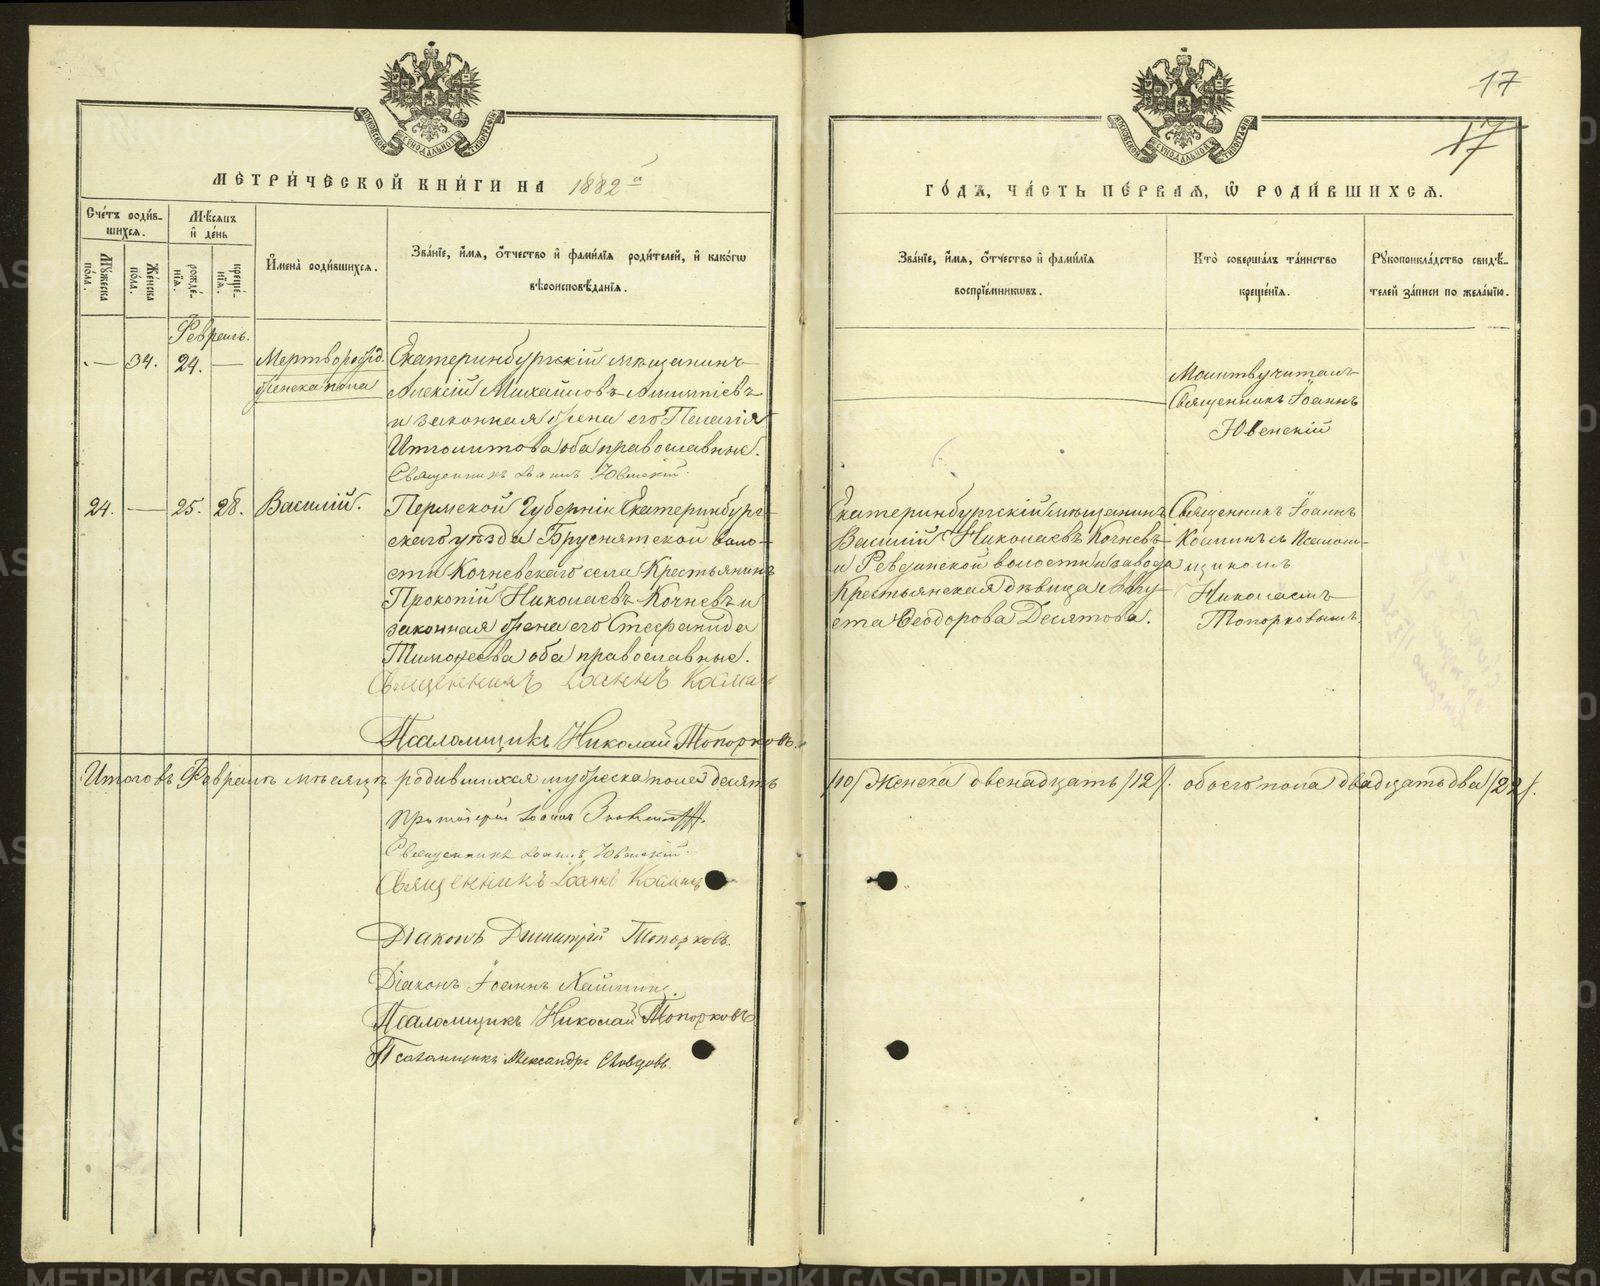 17
17
МЕТРИ́ЧЕСКОЙ КНИ́ГИ НА 1882й
ГО́ДЪ, ЧА́СТЬ ПЕ́РВАЯ, Ѡ РОДИ́ВШИХСЯ.
Сче́тъ роди́в-
шихся.
Мѣ́сяцъ
и де́нь
Мꙋ́жеска
по́ла.
Же́нска
по́ла.
рожде́-
нїя.
креще́-
нїя.
И҆мена̀ роди́вшихся.
Зва́нїе, и҆́мя, ѻ҆́тчество и҆ фами́лїя роди́телей, и҆ како́гѡ
вѣроисповѣ́данїя.
Зва́нїе, и҆́мя, ѻ҆́тчество и҆ фами́лїя
воспрїе́мникѡвъ.
Кто̀ соверша́лъ та́инство
креще́нїя.
Рꙋкоприкла́дство свидѣ́-
телей за́писи по жела́нїю.
Февраль.
— 34. 24. —
Мертворожд.
женска пола
Екатеринбургскій мѣщанинъ
Алексій Михайловъ
и законная жена его Пелагія
Ипполитова оба православные.
Священникъ Іоаннъ Ювенскій.
Молитву читалъ
Священникъ Іоаннъ
Ювенскій
24. — 25. 28. Василій.
Пермской Губерніи Екатеринбург-
скаго уѣзда Бруснятской воло-
сти Кочневскаго села Крестьянинъ
Прокопій Николаевъ Кочневъ и
законная жена его Стефанида
Тимофеева оба православные.
Священникъ Іоаннъ
Псаломщикъ Николай Топорковъ.
Екатеринбургскій мѣщанинъ
Василій Николаевъ Кочневъ
и Ревдинской волости и завода
Крестьянская дѣвица Авгу-
ста Ѳеодорова Десятова.
Священникъ Іоаннъ
съ Псалом-
щикомъ
Николаемъ
Топорковымъ.
Итого въ Февралѣ мѣсяцѣ родившихся мужеска пола десять /10/ Женска двѣнадцать /12/. обоего пола двадцать два /22/.
Протоіерей Іоаннъ
Священникъ Іоаннъ Ювенскій.
Священникъ Іоаннъ
Діаконъ Димитрій Топорковъ.
Діаконъ Іоаннъ
Псаломщикъ Николай Топорковъ
Псаломщикъ Александръ Словцовъ.
METRIKI.GASO-URAL.RU